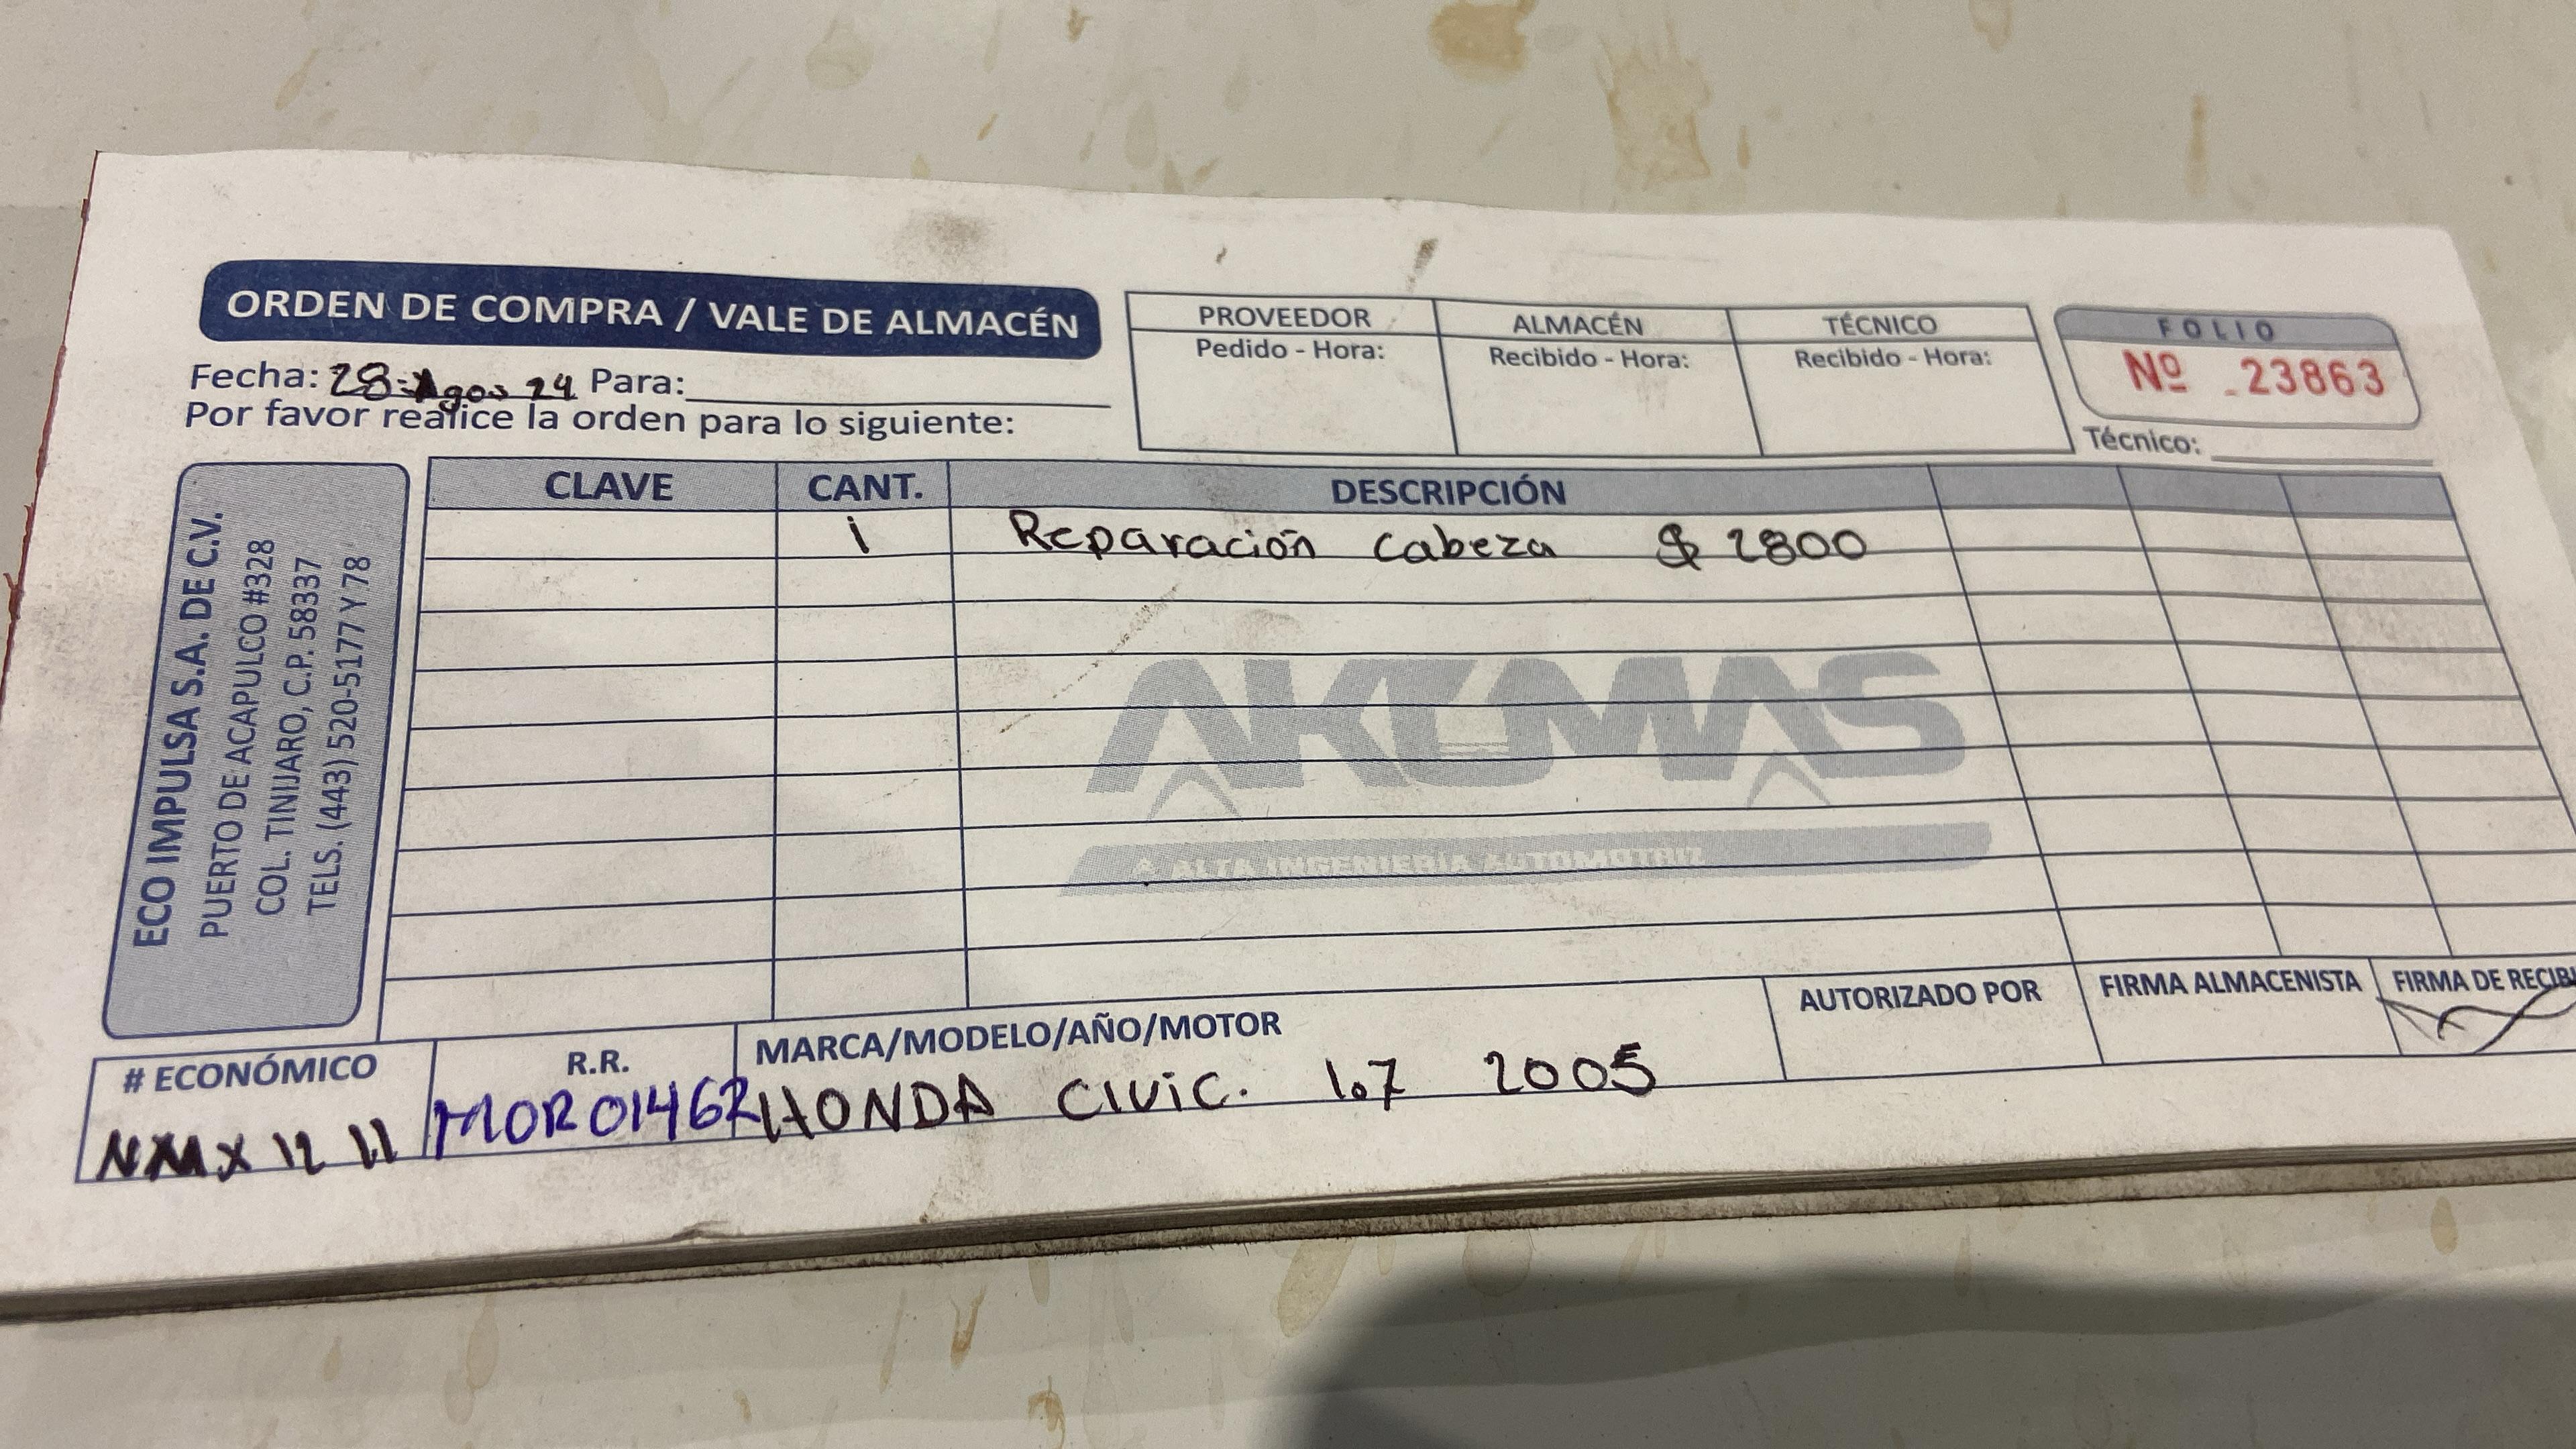 ORDEN DE COMPRA / VALE DE ALMACÉN
Fecha: 28-Agos 24 Para:
Por favor realice la orden para lo siguiente:
PROVEEDOR ALMACÉN TÉCNICO
Pedido - Hora: Recibido - Hora: Recibido - Hora:
FOLIO
Nº 23863
Técnico:
ECO IMPULSA S.A. DE C.V.
PUERTO DE ACAPULCO #328
COL. TINIJARO, C.P. 58337
TELS. (443) 520-5177 Y 78
CLAVE CANT. DESCRIPCIÓN
1 Reparación cabeza $ 2800
AKUMAS
ALTA INGENIERÍA AUTOMOTRIZ
# ECONÓMICO R.R. MARCA/MODELO/AÑO/MOTOR AUTORIZADO POR FIRMA ALMACENISTA FIRMA DE
MOR01462 HONDA CIVIC. 1.7 2005